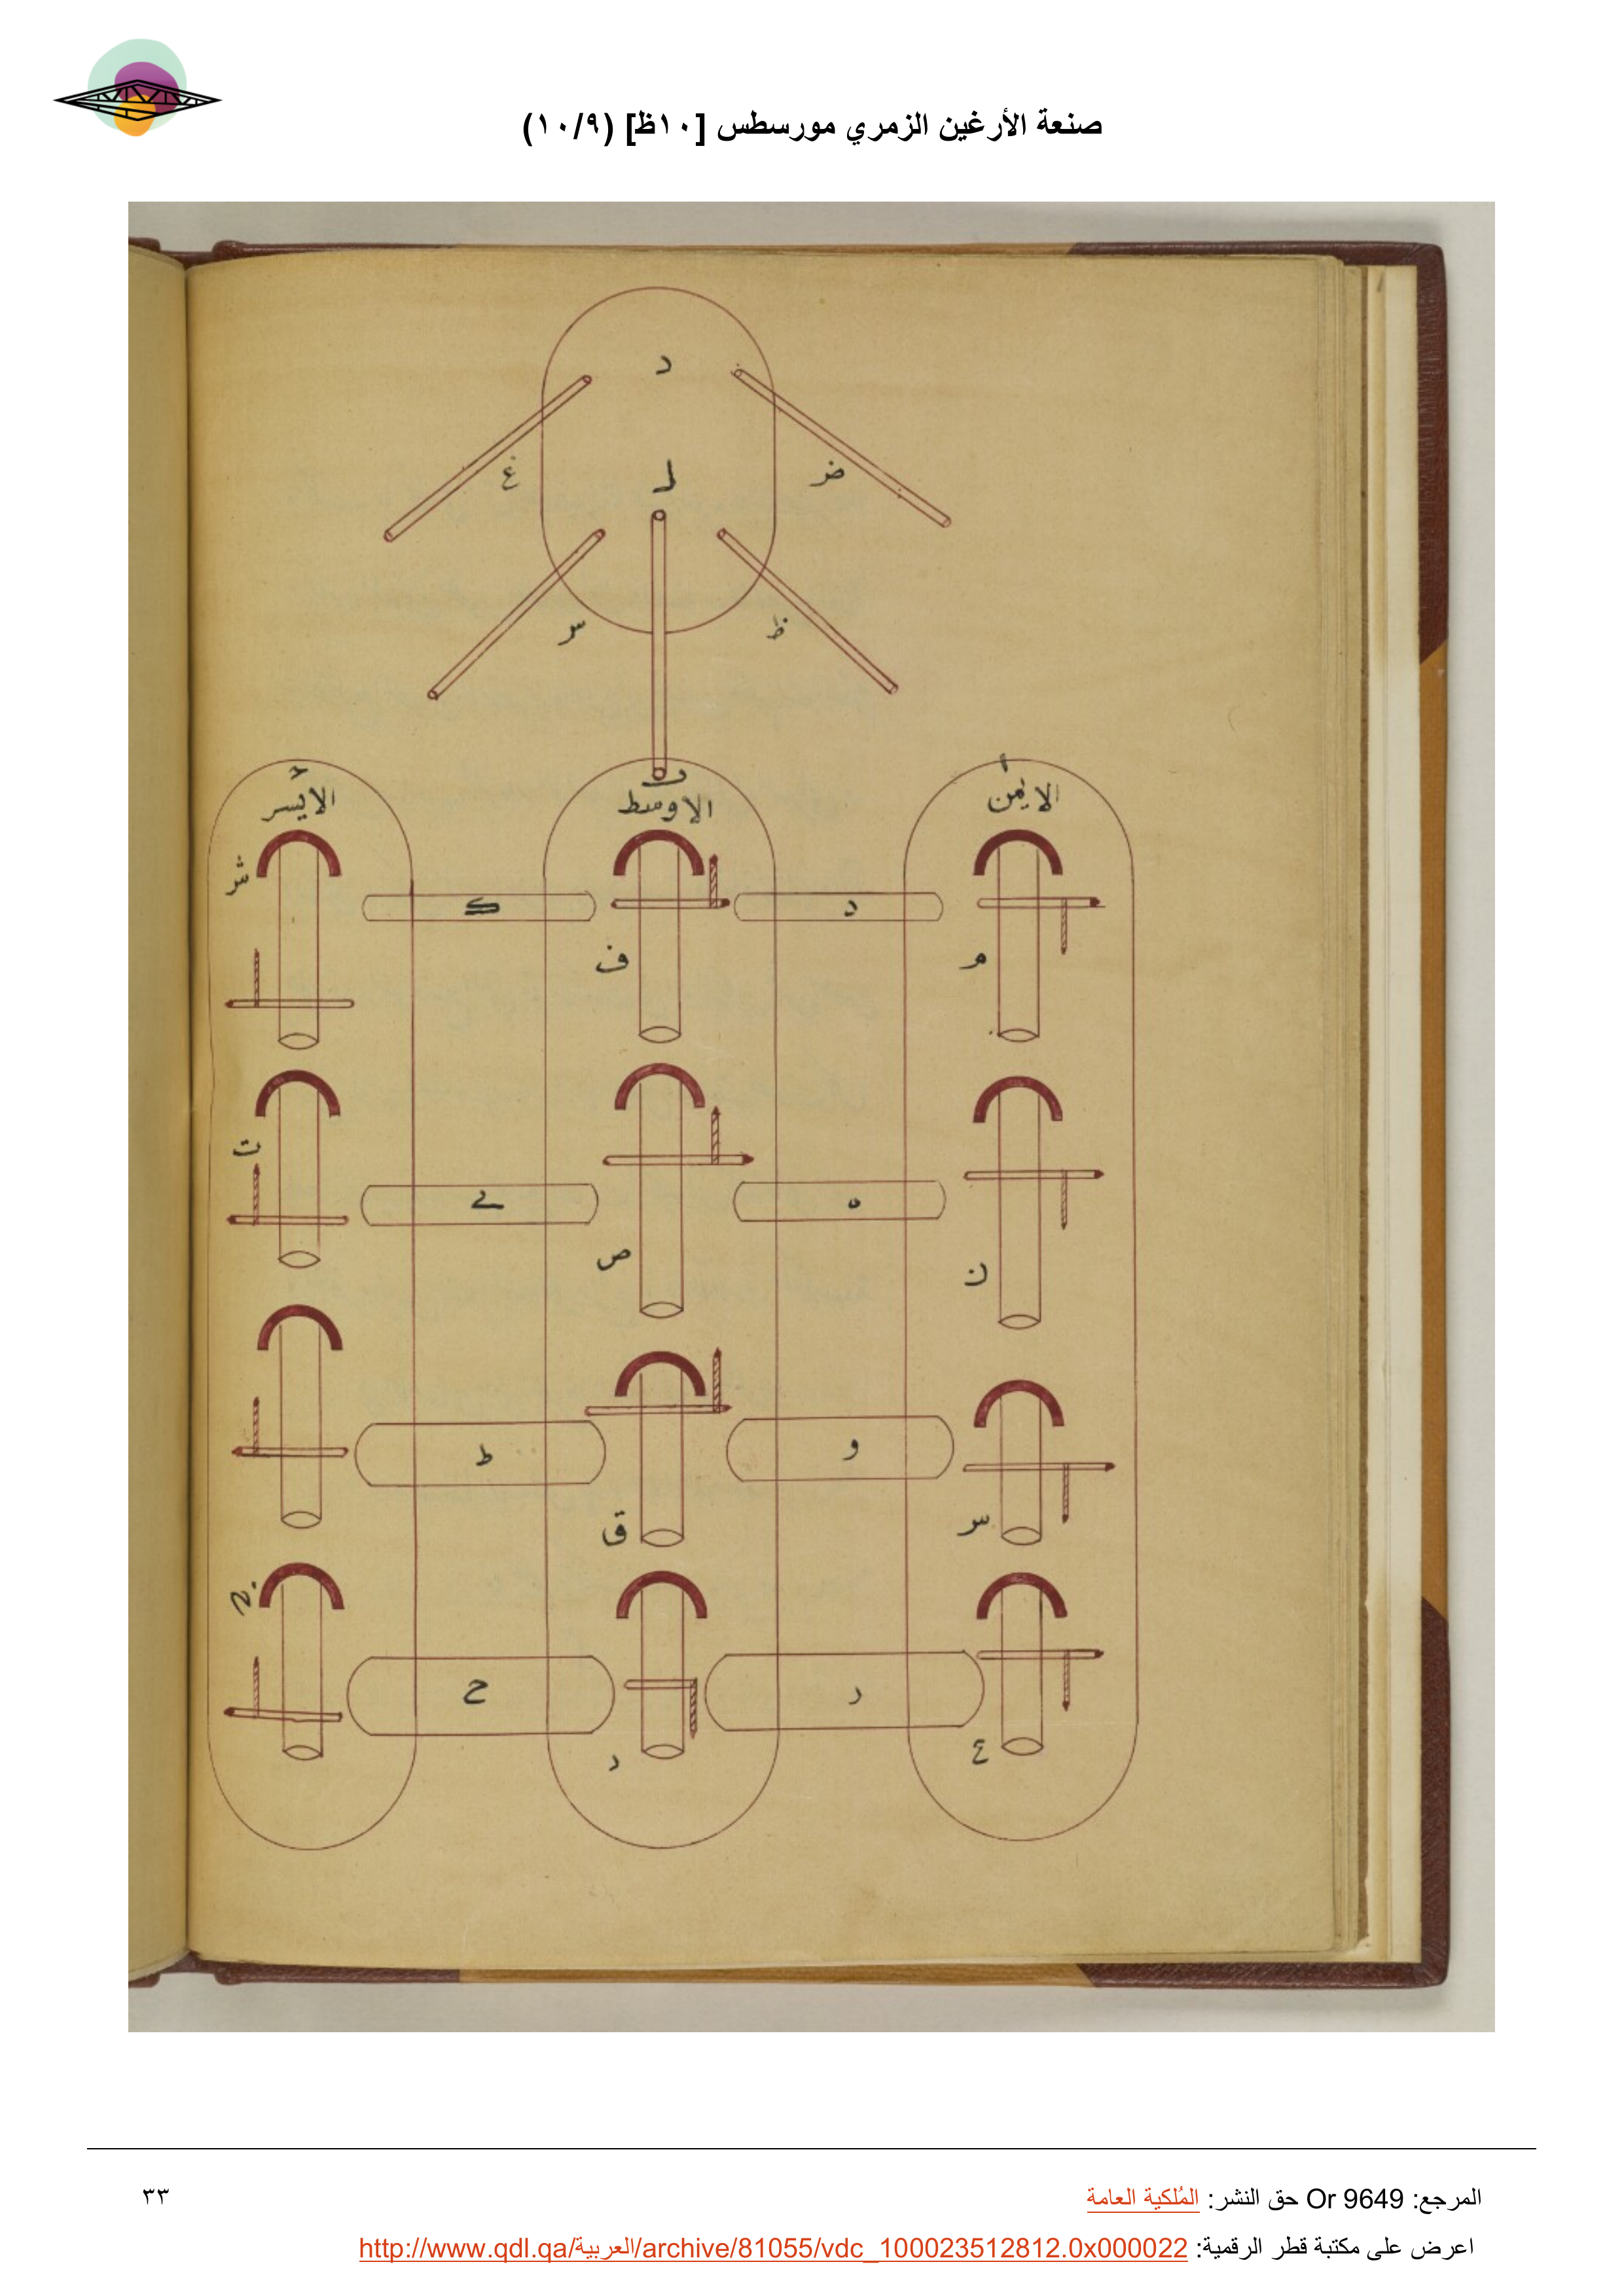 صنعة الأرغين الزمري مورسطس [١٠ظ] (١٠/٩)
د
ض
غ
ظ
الايمن
الاوسط
الايسر
ش
د
ك
م
ف
ت
ه
ص
ن
و
ط
س
ق
ح
ع
د
المرجع: Or 9649 حق النشر: المُلكية العامة
٣٣
اعرض على مكتبة قطر الرقمية: http://www.qdl.qa/العربية/archive/81055/vdc_100023512812.0x000022